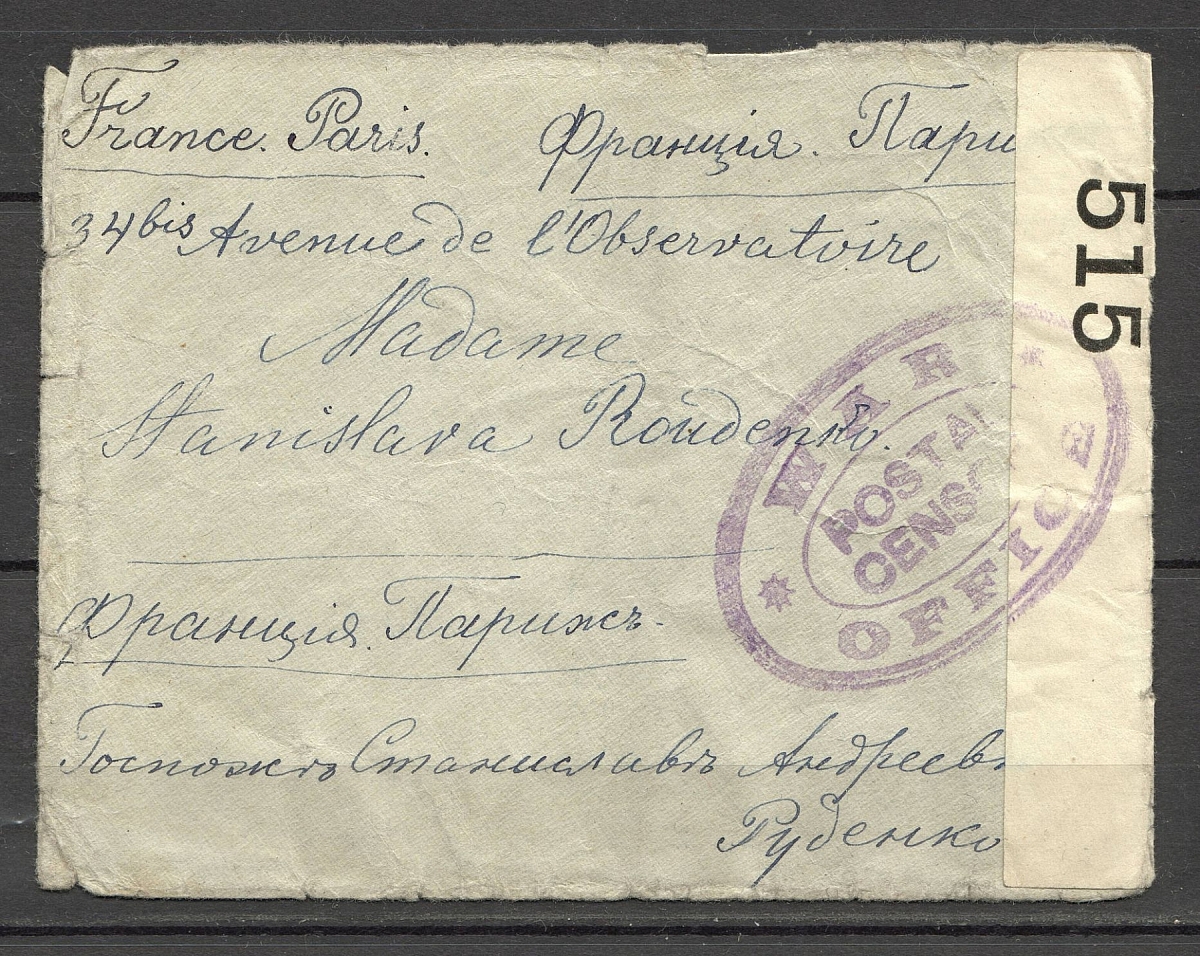 France. Paris. Франція. Пари
34bis Avenue de l'Observatoire
Madame
Stanislava Roudenko.
Франція. Парижъ.
Госпожѣ Станиславѣ Андреевн
Руденко
WAR OFFICE
POSTAL
CENSO
515